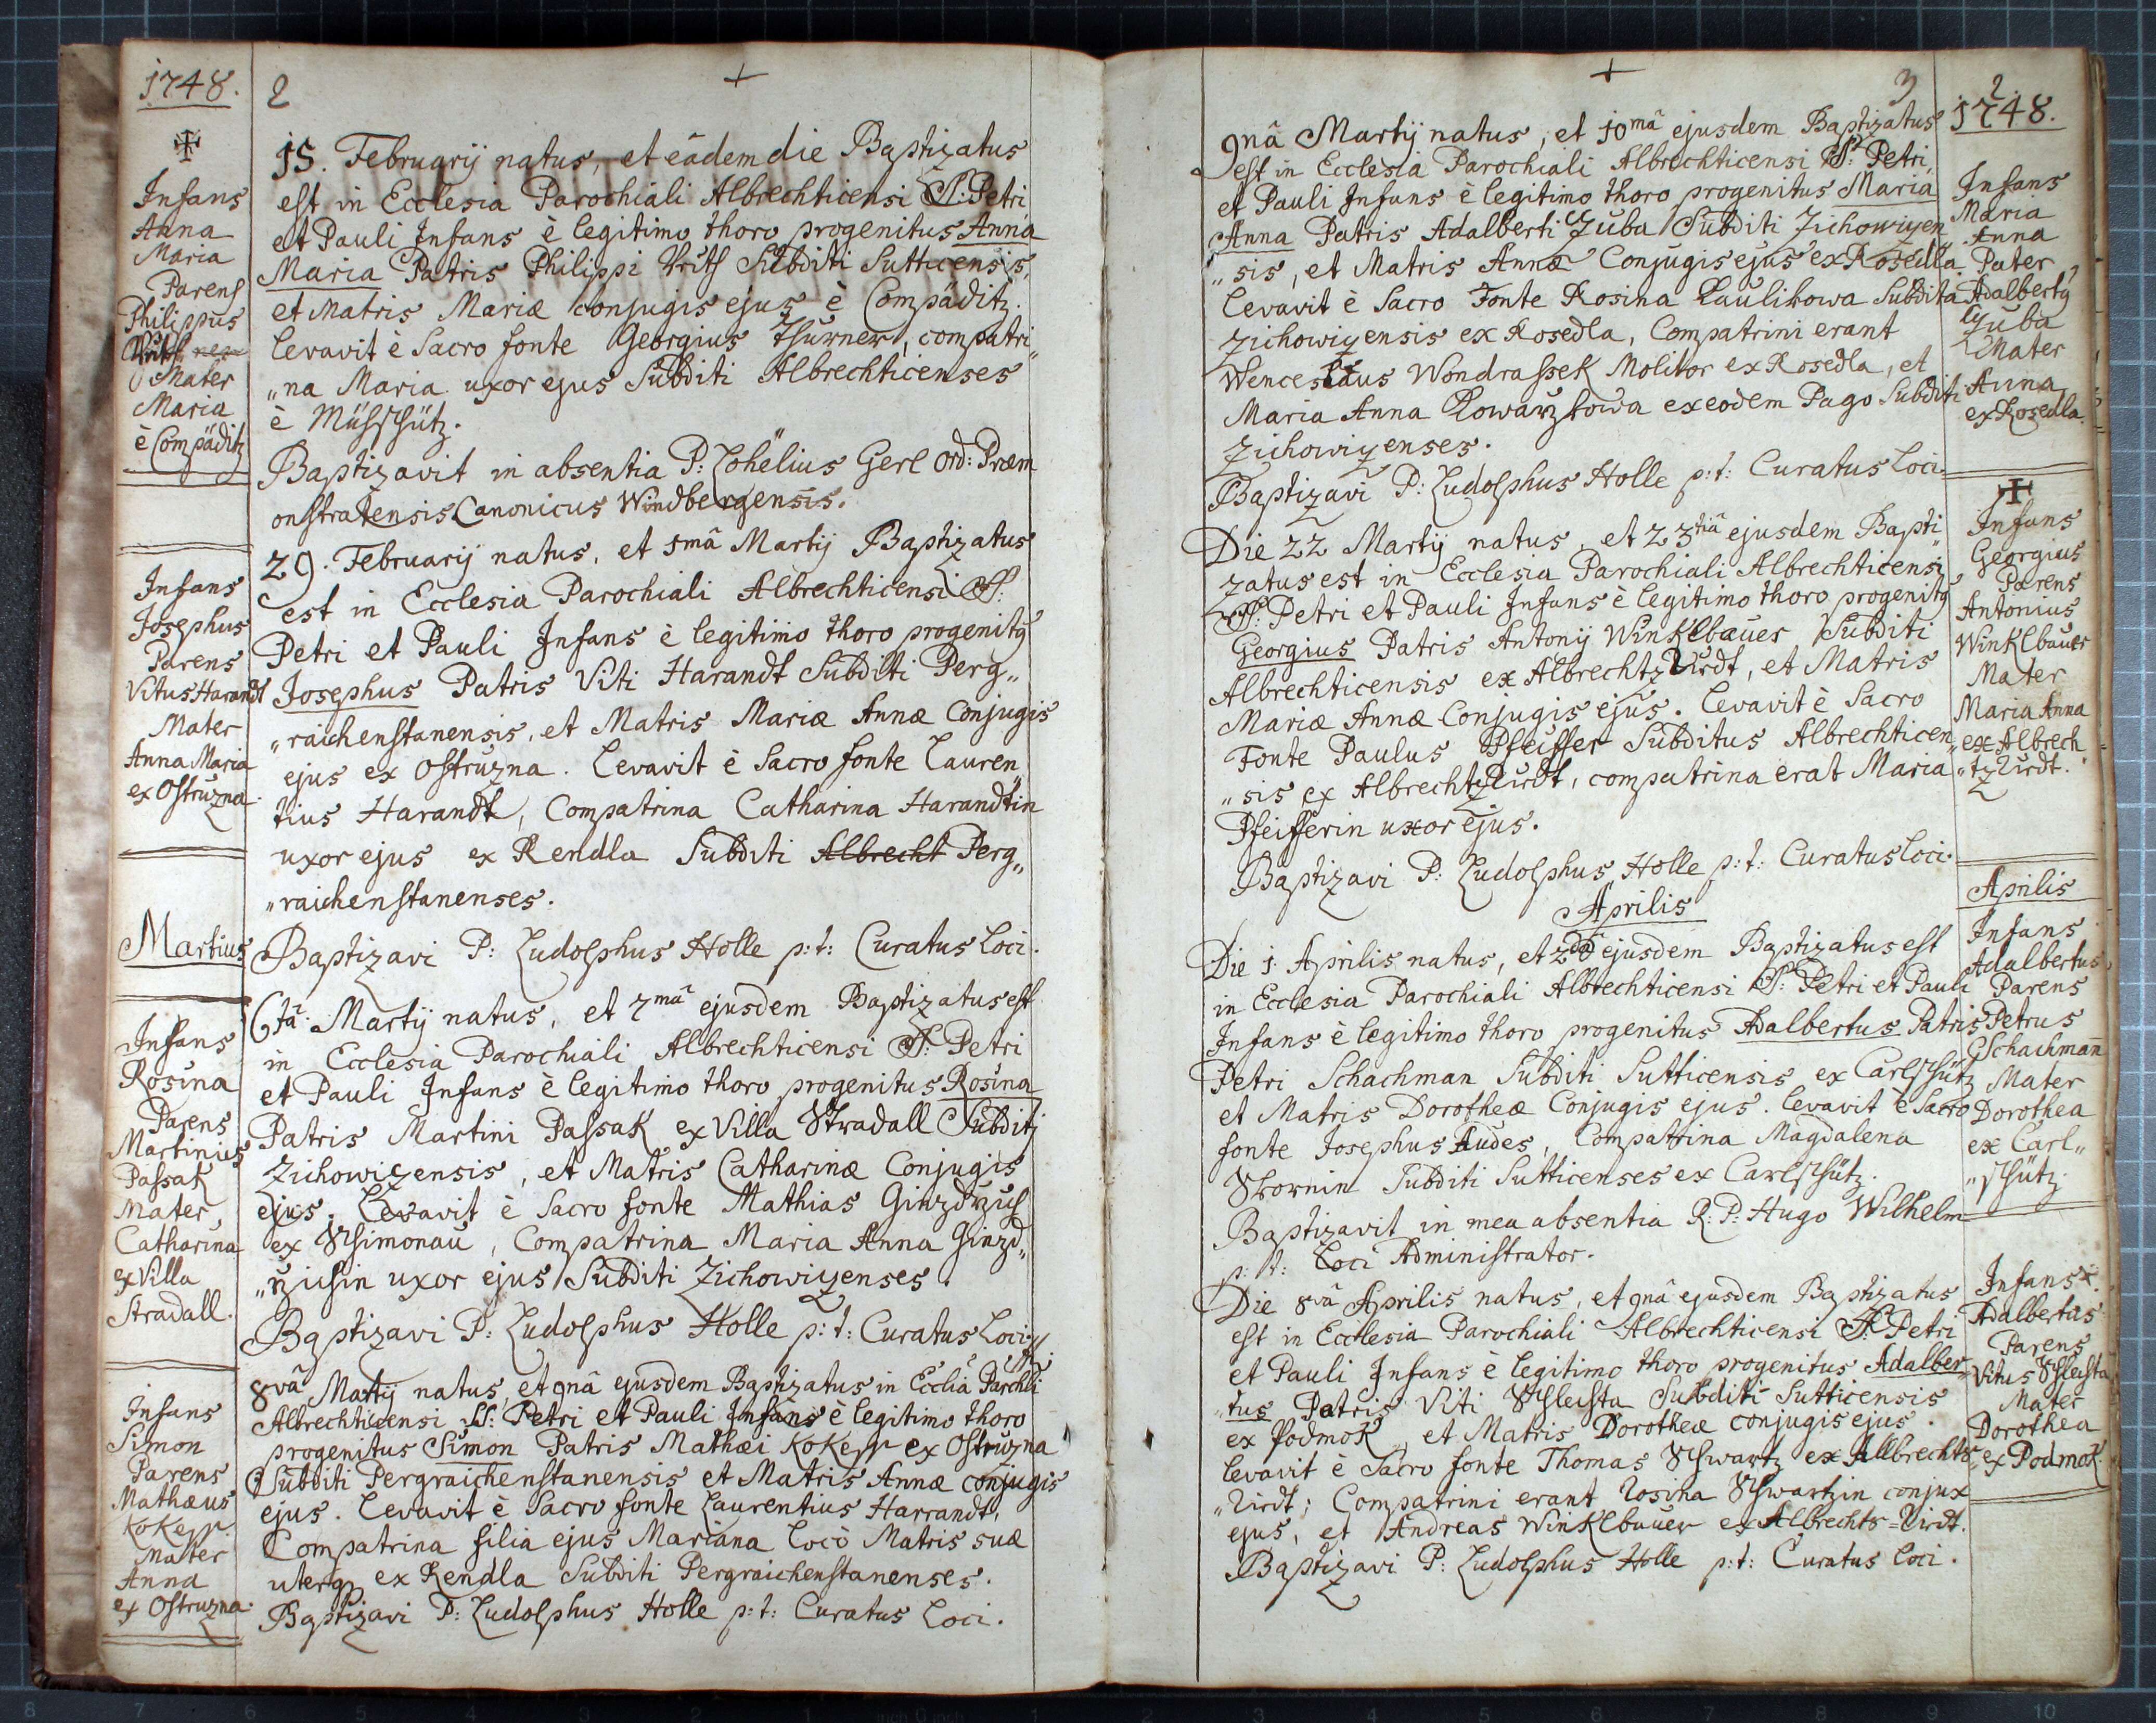 1748.
2
15. Februarij natus, et eâdem die Baptizatus
est in Ecclesia Parochiali Albrechticensi SS: Petri
et Pauli Infans è legitimo thoro progenitus Anna
Maria Patris Philippi Subditi Sutticensis,
et Matris Mariæ conjugis ejus è Compäditz.
levavit è Sacro fonte Georgius Thurner, compatri„
„na Maria uxor ejus Subditi Albrechticenses
è Müsschütz.
Baptizavit in absentia P: Lohëlius Gerl Ord: Præm
onstratensis Canonicus Windbergensis.
Infans
Anna
Maria
Parens
Philippus
Mater
Maria
è Compäditz
29. Februarij natus, et 1mâ Martij Baptizatus
est in Ecclesia Parochiali Albrechticensi SS:
Petri et Pauli Infans è legitimo thoro progenitq
Josephus Patris Viti Harandt Subditi Perg„
„raichenstanensis, et Matris Mariæ Annæ Conjugis
ejus ex Ostruzna. Levavit è Sacro fonte Lauren„
tius Harandt, Compatrina Catharina Harandtin
uxor ejus ex Rendla Subditi Albrecht Perg„
„raichenstanenses.
Baptizavi P: Ludolphus Holle p: t: Curatus Loci.
Infans
Josephus
Parens
Vitus Harandt
Mater
Anna Maria
ex Ostruzna.
Martius
6tâ. Martij natus, et 7mâ ejusdem Baptizatus est
in Ecclesia Parochiali Albrechticensi SS: Petri
et Pauli Infans è legitimo thoro progenitus Rosina
Patris Martini Passak ex Villa Stradall Subditj
Zichowizensis, et Matris Catharinæ Conjugis
ejus. Levavit è Sacro fonte Mathias
ex Schimonau, Compatrina Maria Anna Ginzd„
uxor ejus Subditi Zichowizenses.
Baptizavi P: Ludolphus Holle p: t: Curatus Loci
Infans
Rosina
Parens
Martinius
Passak
Mater,
Catharina
ex Villa
Stradall.
8vâ Martij natus, et 9nâ ejusdem Baptizatus in Ecclia Parchli
Albrechticensi SS: Petri et Pauli Infans è legitimo thoro
progenitus Simon Patris Mathæi ex Ostruzna
Subditi Pergraichenstanensis et Matris Annæ conjugis
ejus. levavit è Sacro fonte Laurentius Harrandt,
Compatrina filia ejus Mariana locò Matris suæ
uterq ex Rendla Subditi Pergraichenstanenses.
Baptizavi P: Ludolphus Holle p: t: Curatus Loci.
Infans
Simon
Parens
Mathæus
Mater
Anna
ex Ostruzna
3
2
1748.
9nâ Martij natus, et 10mâ ejusdem Baptizatus
est in Ecclesia Parochiali Albrechticensi SS: Petri
et Pauli Infans è legitimo thoro progenitus Maria
Anna Patris Adalberti Zuba Subditi Zichowizen
„sis, et Matris Annæ Conjugis ejus ex Rosedla.
levavit è Sacro Fonte Rosina Paulikowa Subdita
Zichowizensis ex Rosedla, Compatrini erant
Wenceslaus Wondrassek Molitor ex Rosedla, et
Maria Anna Kowarzkowa ex eodem Pago Subditi
Zichowizenses.
Baptizavi P: Ludolphus Holle p: t: Curatus Loci.
Infans
Maria
Anna
Pater
Adalbertq
Zuba
Mater
Anna
ex Rosedla.
Die 22 Martij natus, et 23tiâ ejusdem Bapti„
zatus est in Ecclesia Parochiali Albrechticensi
SS: Petri et Pauli Infans è legitimo thoro progenitq
Georgius Patris Antonij Winklbauer Subditi
Albrechticensis ex Albrechtzridt, et Matris
Mariæ Annæ Conjugis ejus. Levavit è Sacro
Fonte Paulus Pfeiffer Subditus Albrechticen„
„sis ex Albrechtzridt, compatrina erat Maria
Pfeifferin uxor ejus.
Baptizavi P: Ludolphus Holle p: t: Curatus Loci.
Infans
Georgius
Parens
Antonius
Winklbauer
Mater
Maria Anna
ex Albrech
„tzridt.
Aprilis
Die 1. Aprilis natus, et 2dâ ejusdem Baptizatus est
in Ecclesia Parochiali Albrechticensi SS: Petri et Pauli
Infans è legitimo thoro progenitus Adalbertus Patris
Petri Schachman Subditi Sutticensis ex Carlschütz
et Matris Dorotheæ Conjugis ejus. levavit è Sacro
fonte Josephus Audes, Compatrina Magdalena
Skornin Subditi Sutticenses ex Carlschütz.
Baptizavit in mea absentia R: P: Hugo Wilhelm
p: t: Loci Administrator.
Aprilis
Infans
Adalbertus
Parens
Petrus
Schachman̄
Mater
Dorothea
ex Carl„
„schütz.
Die 8vâ Aprilis natus, et 9nâ ejusdem Baptizatus
est in Ecclesia Parochiali Albrechticensi SS: Petri
et Pauli Infans è legitimo thoro progenitus Adalber„
„tus Patris Viti Schleista Subditi Sutticensis
ex Podmok et Matris Dorotheæ conjugis ejus.
levavit è Sacro fonte Thomas Schwartz ex Albrechts„
„ridt; Compatrini erant Rosina Schwartzin conjux
ejus, et Andreas Winklbauer ex Albrechts=ridt.
Baptizavi P: Ludolphus Holle p: t: Curatus Loci.
Infans
Adalbertus
Parens
Vitus Schleista
Mater
Dorothea
ex Podmok.